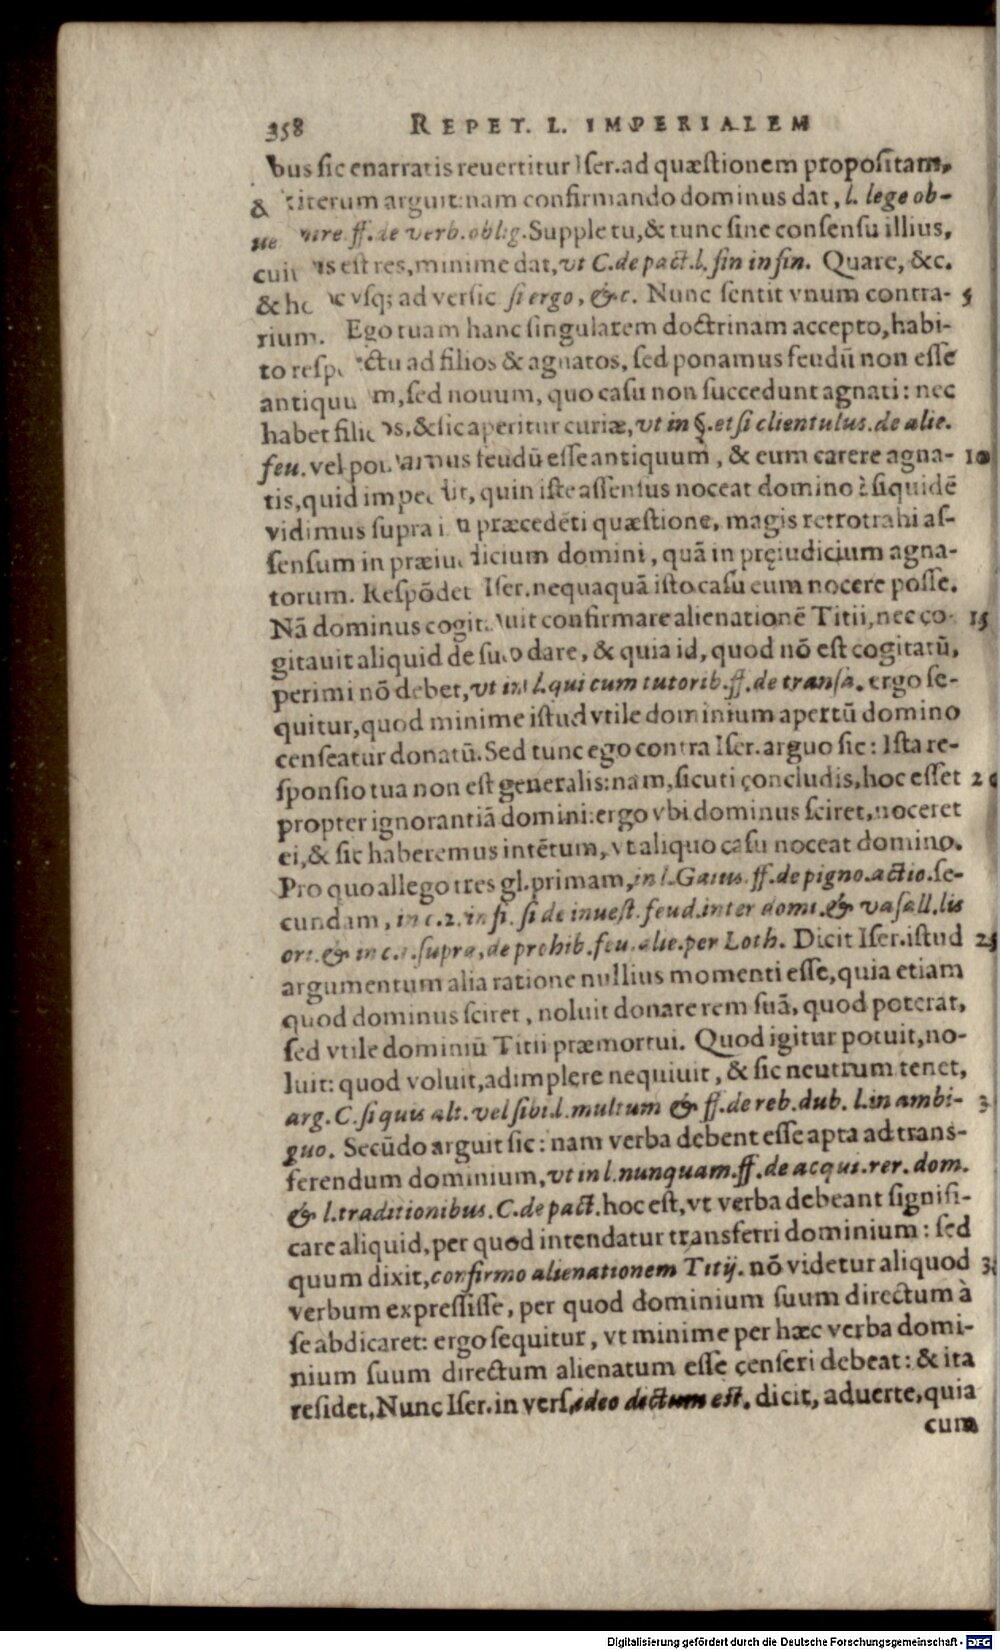 358 REPET. L. IMPERIALEM
bus sic enarratis reuertitur Iser. ad quæstionem propositam,
& iterum arguit: nam confirmando dominus dat, l. lege ob-
ue nire ff. de verb. oblig. Supple tu, & tunc sine consensu illius,
cuius est res, minime dat, vt C. de pact. l. fin in fin. Quare, &c.
& hc vsq; ad versic si ergo, &c. Nunc sentit vnum contra- 5
rium. Ego tuam hanc singularem doctrinam accepto, habi-
to respectu ad filios & agnatos, sed ponamus feudū non esse
antiquum, sed nouum, quo casu non succedunt agnati: nec
habet filios, & sic aperitur curiæ, vt in §. et si clientulus. de alie.
feu. vel ponamus feudū esse antiquum, & eum carere agna- 10
tis, quid impedit, quin iste assensus noceat domino? siquidē
vidimus supra in præcedēti quæstione, magis retrotrahi as-
sensum in præiudicium domini, quā in pręiudicium agna-
torum. Respōdet Iser. nequaquā isto casu eum nocere posse.
Nā dominus cogitauit confirmare alienationē Titii, nec co- 15
gitauit aliquid de suo dare, & quia id, quod nō est cogitatū,
perimi nō debet, vt in l. qui cum tutorib. ff. de transa. ergo se-
quitur, quod minime istud vtile dominium apertū domino
censeatur donatū. Sed tunc ego contra Iser. arguo sic: Ista re-
sponsio tua non est generalis: nam, sicuti concludis, hoc esset 20
propter ignorantiā domini: ergo vbi dominus sciret, noceret
ei, & sic haberemus intētum, vt aliquo casu noceat domino.
Pro quo allego tres gl. primam, in l. Gaius. ff. de pigno. actio. se-
cundam, in c. 2. in fi. si de inuest. feud. inter domi. & vasall. lis
ori. & in c. 1. supra, de prohib. feu. alie. per Loth. Dicit Iser. istud 25
argumentum alia ratione nullius momenti esse, quia etiam
quod dominus sciret, noluit donare rem suā, quod poterat,
sed vtile dominiū Titii præmortui. Quod igitur potuit, no-
luit: quod voluit, adimplere nequiuit, & sic neutrum tenet,
arg. C. si quis alt. vel sibi. l. multum & ff. de reb. dub. l. in ambi- 3
guo. Secūdo arguit sic: nam verba debent esse apta ad trans-
ferendum dominium, vt in l. nunquam. ff. de acqui. rer. dom.
& l. traditionibus. C. de pact. hoc est, vt verba debeant signifi-
care aliquid, per quod intendatur transferri dominium: sed
quum dixit, confirmo alienationem Titij. nō videtur aliquod 35
verbum expressisse, per quod dominium suum directum à
se abdicaret: ergo sequitur, vt minime per hæc verba domi-
nium suum directum alienatum esse censeri debeat: & ita
residet, Nunc Iser. in vers. ideo dictum est. dicit, aduerte, quia
cum
Digitalisierung gefördert durch die Deutsche Forschungsgemeinschaft - DFG